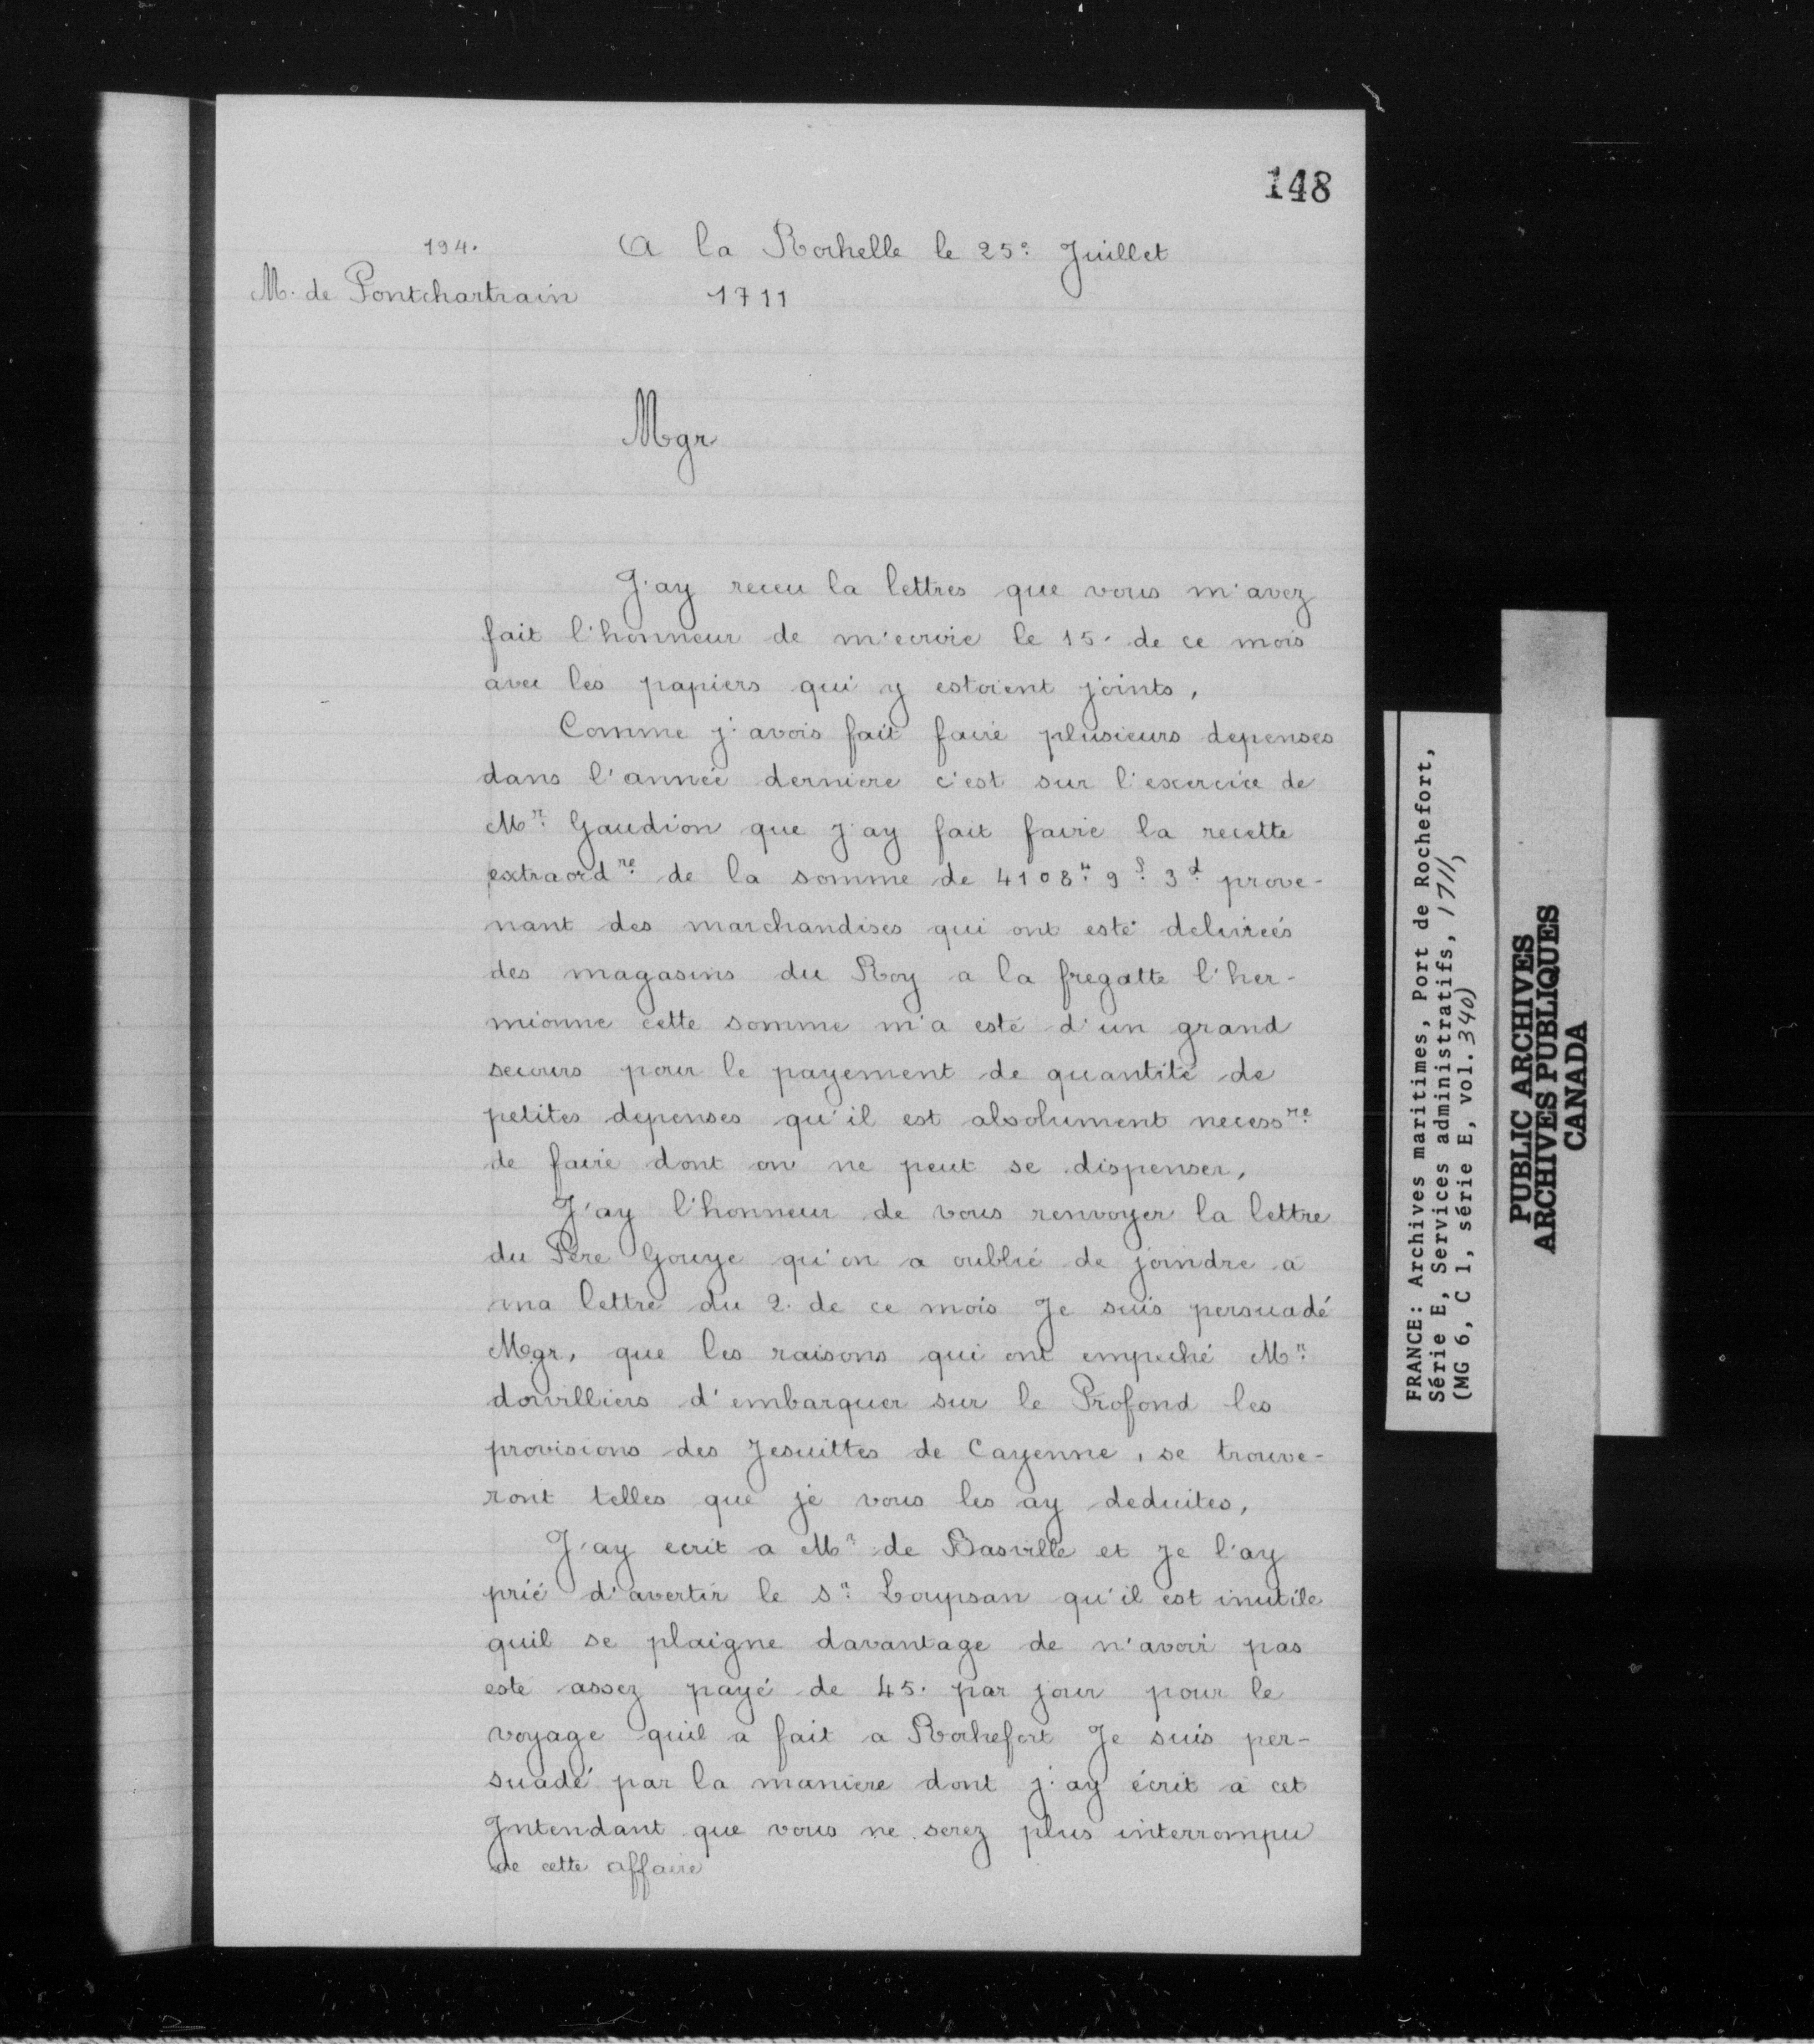 148
194.
M. de Pontchartrain
A la Rochelle le 25e Juillet
1711
Mgr
J'ay receu la lettres que vous m'avez
fait l'honneur de m'ecrire le 15. de ce mois
avec les papiers qui y estoient joints,
Comme j'avois fait faire plusieurs depenses
dans l'année derniere c'est sur l'exercice de
Mr. Gaudion que j'ay fait faire la recette
extraordre. de la somme de 4108tt 9s 3d prove-
nant des marchandises qui ont esté delivrées
des magasins du Roy a la fregatte l'her-
mionne cette somme m'a esté d'un grand
secours pour le payement de quantité de
petites depenses qu'il est absolument necessre.
de faire dont on ne peut se dispenser,
J'ay l'honneur de vous renvoyer la lettre
du Père Gouye qu'on a oublié de joindre a
ma lettre du 2. de ce mois Je suis persuadé
Mgr, que les raisons qui ont empeché Mr.
dorvilliers d'embarquer sur le Profond les
provisions des Jesuittes de Cayenne, se trouve-
ront telles que je vous les ay deduites,
J'ay ecrit a Mr. de Basville et Je l'ay
prié d'avertir le sr. Loupsan qu'il est inutile
quil se plaigne davantage de n'avoir pas
esté assez payé de 45. par jour pour le
voyage quil a fait a Rochefort Je suis per-
suadé par la maniere dont j'ay écrit a cet
Intendant que vous ne serez plus interrompu
de cette affaire
FRANCE: Archives maritimes, Port de Rochefort,
Série E, Services administratifs, 1711,
(MG 6, C 1, série E, vol. 340)
PUBLIC ARCHIVES
ARCHIVES PUBLIQUES
CANADA